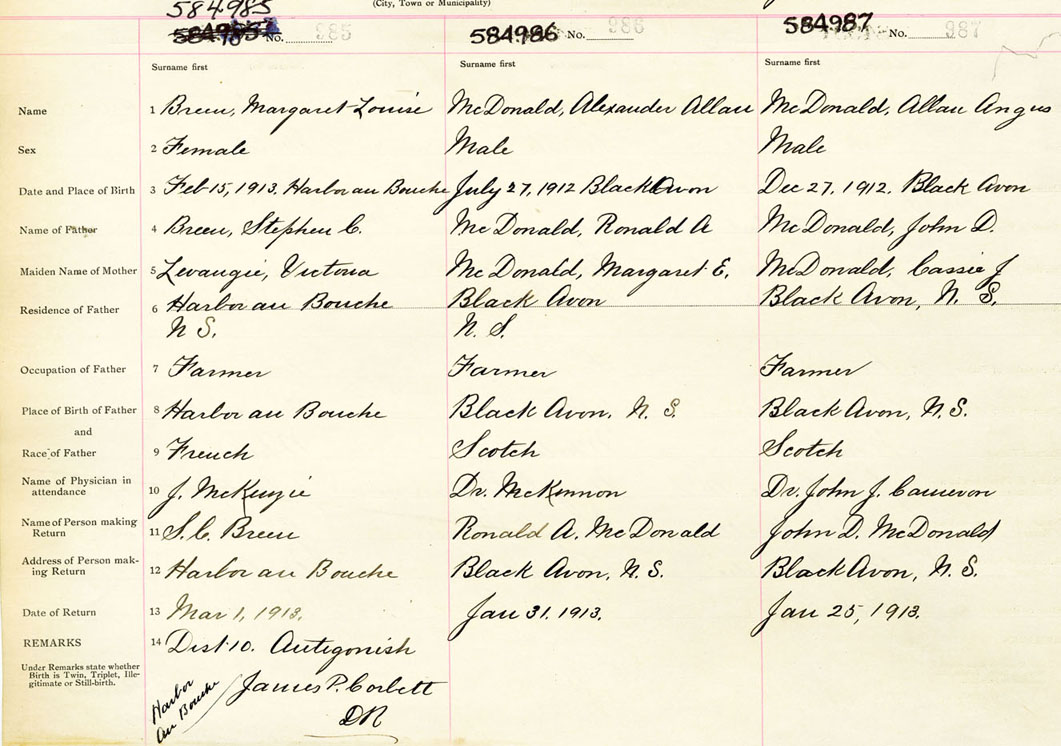 (City, Town or Municipality)
584985
No. 985
584986 No. 986
584987 No. 987
Surname first Surname first Surname first
Name 1 Breen, Margaret Louise McDonald, Alexander Allan McDonald, Allan Angus
Sex 2 Female Male Male
Date and Place of Birth 3 Feb 15, 1913. Harbor au Bouche July 27, 1912 Black Avon Dec 27, 1912. Black Avon
Name of Father 4 Breen, Stephen C. McDonald, Ronald A McDonald, John D.
Maiden Name of Mother 5 Levangie, Victoria McDonald, Margaret E. McDonald, Cassie J
Residence of Father 6 Harbor au Bouche Black Avon Black Avon, N. S.
N S. N. S.
Occupation of Father 7 Farmer Farmer Farmer
Place of Birth of Father 8 Harbor au Bouche Black Avon, N. S. Black Avon, N. S.
and
Race of Father 9 French Scotch Scotch
Name of Physician in
attendance 10 J. McKenzie Dr. McKinnon Dr. John J. Cameron
Name of Person making
Return 11 S. C. Breen Ronald A. McDonald John D. McDonald
Address of Person mak-
ing Return 12 Harbor au Bouche Black Avon, N. S. Black Avon, N. S.
Date of Return 13 Mar 1, 1913. Jan 31. 1913. Jan 25, 1913.
REMARKS 14 Dist 10. Antigonish
Under Remarks state whether
Birth is Twin, Triplet, Ille-
gitimate or Still-birth.
James P. Corbett
DR
Harbor
Au Bouche